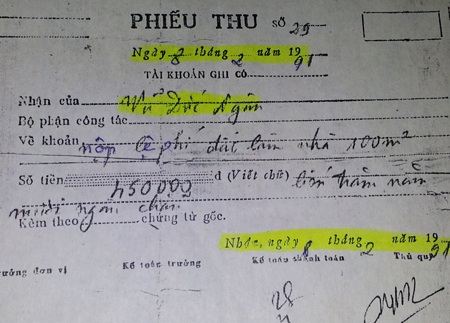 PHIẾU THU SỐ 29
Ngày 8 tháng 2 năm 1991
TÀI KHOẢN GHI CÓ
Nhận của Vũ Đức Ngân
Bộ phận công tác
Về khoản nộp lệ phí đất làm nhà 100m²
Số tiền 450000 đ (Viết chữ) bốn trăm năm
mươi ngàn chẵn
Kèm theo chứng từ gốc.
Nhận, ngày 8 tháng 2 năm 1991
trưởng đơn vị Kế toán trưởng Kế toán thanh toán Thủ quỹ